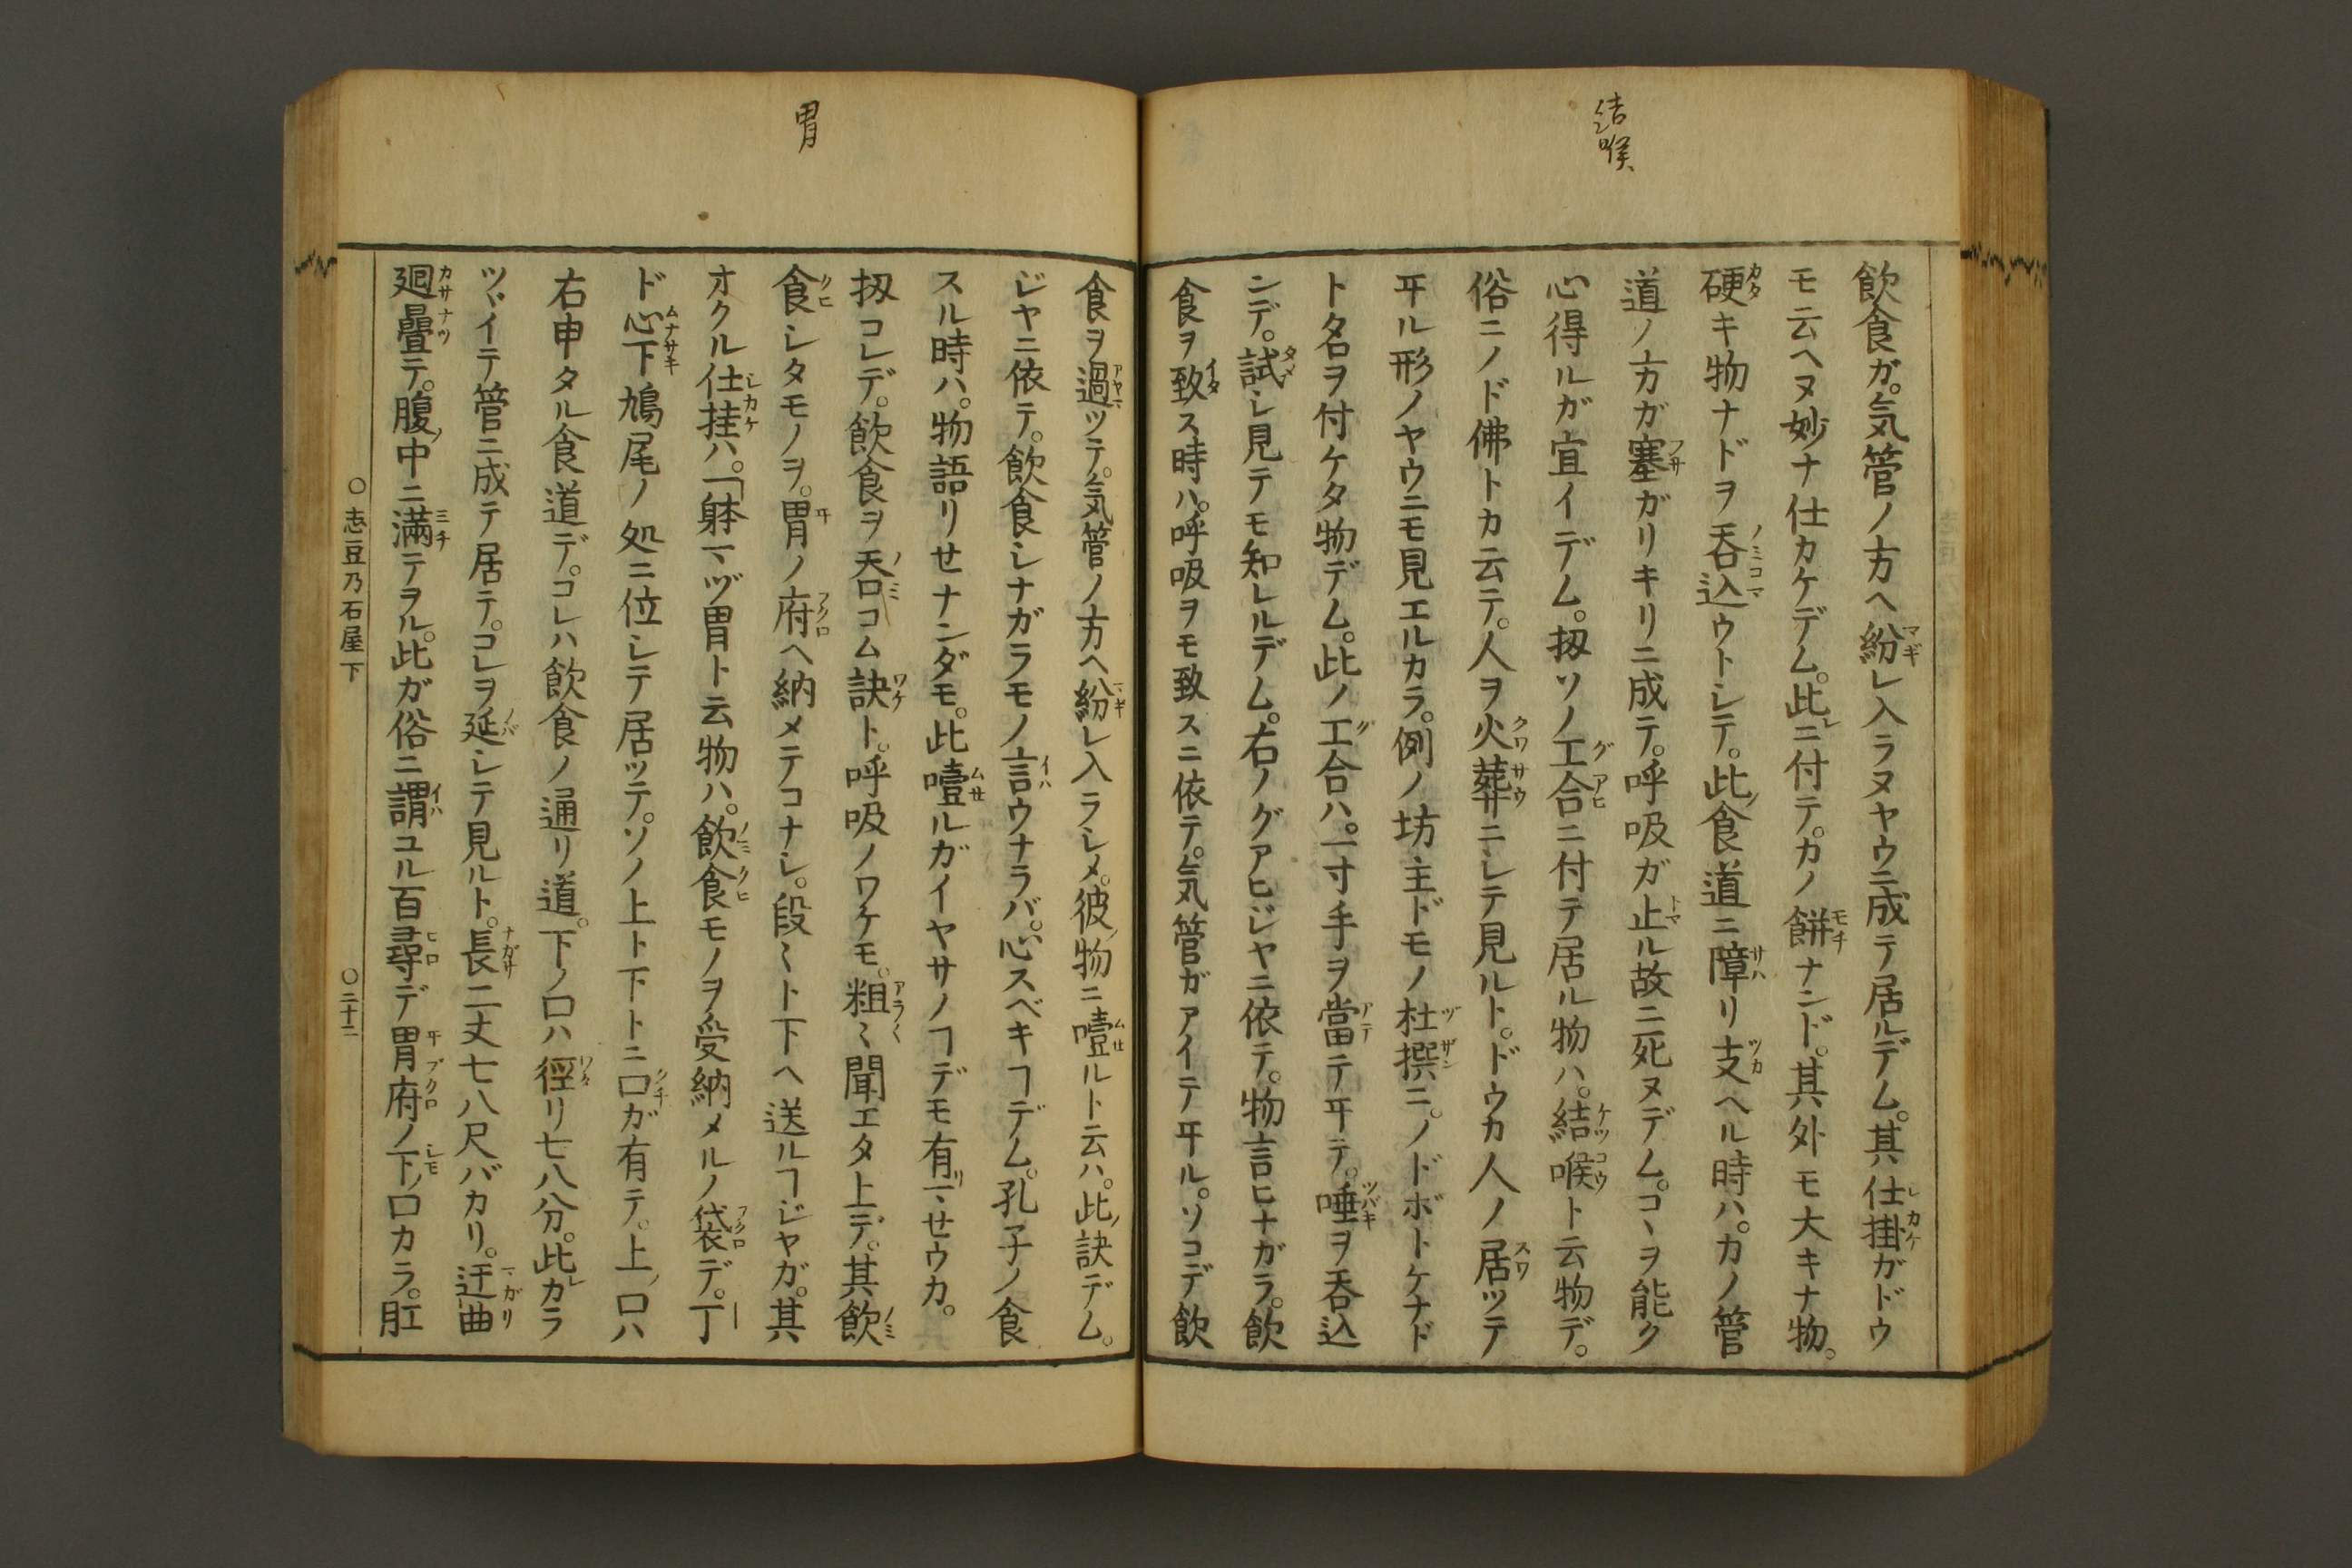 結喉
飲食ガ。気管ノ方ヘ紛レ入ラヌヤウニ成テ居ルデム。其仕掛ガドウ
モ云ヘヌ妙ナ仕カケデム。此レニ付テ。カノ餅ナンド。其外モ大キナ物。
硬キ物ナドヲ呑込ウトレテ。此ノ食道ニ障リ支ヘル時ハ。カノ管
道ノ方ガ塞ガリキリニ成テ。呼吸ガ止ル故ニ死ヌデム。コヽヲ能ク
心得ルガ宜イデム。扨ソノ工合ニ付テ居ル物ハ。結喉ト云物デ。
俗ニノド佛トカ云テ。人ヲ火葬ニシテ見ルト。ドウカ人ノ居ツテ
ヰル形ノヤウニモ見エルカラ。例ノ坊主ドモノ杜撰ニ。ノドボトケナド
ト名ヲ付ケタ物デム。此ノ工合ハ。一寸手ヲ當テヰテ。唾ヲ呑込
ンデ。試シ見テモ知レルデム。右ノグアヒジヤニ依テ。物言ヒナガラ。飲
食ヲ致ス時ハ。呼吸ヲモ致スニ依テ。気管ガアイテヰル。ソコデ飲
胃
食ヲ過ツテ。気管ノ方ヘ紛レ入ラシメ。彼ノ物ニ噎ルト云ハ。此ノ訣デム。
ジヤニ依テ。飲食シナガラモノ言ウナラバ。心スベキヿデム。孔子ノ食
スル時ハ。物語リせナンダモ。此噎ルガイヤサノヿデモ有リマせウカ。
扨コレデ。飲食ヲ呑コム訣ト。呼吸ノワケモ。粗〻聞エタ上デ。其飲
食シタモノヲ。胃ノ府ヘ納メテコナシ。段〻ト下ヘ送ルヿジヤガ。其
オクル仕挂ハ。一躰マヅ胃ト云物ハ。飲食モノヲ受納メルノ袋デ。丁
ド心下鳩尾ノ処ニ位シテ居ツテ。ソノ上ト下トニ口ガ有テ。上ノ口ハ
右申タル食道デ。コレハ飲食ノ通リ道。下ノ口ハ徑リ七八分。此レカラ
ツヾイテ管ニ成テ居テ。コレヲ延シテ見ルト。長二丈七八尺バカリ。迂曲
廻疊テ。腹ノ中ニ滿テヲル。此ガ俗ニ謂ユル百尋デ胃府ノ下ノ口カラ。肛
○志豆乃石屋下
○二十二